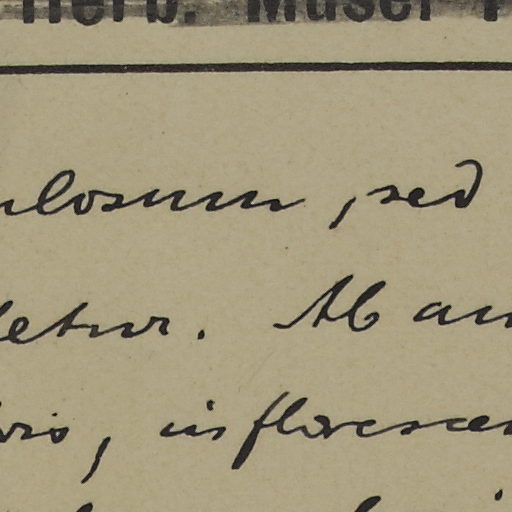 Herb. Musei
ulosum, sed
letur. Ab
oris, inflorescen